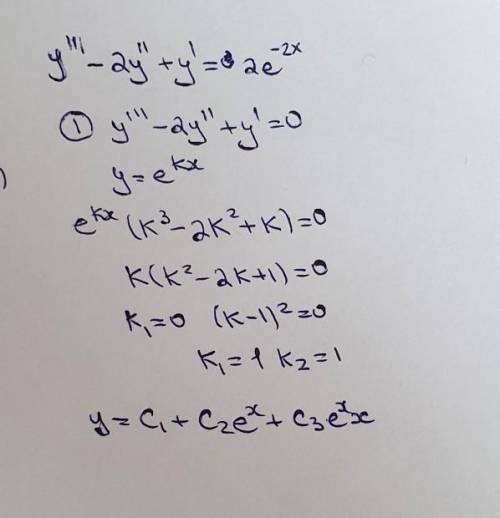 y''' - 2y'' + y' = 2e^{-2x}
① y''' - 2y'' + y' = 0
y = e^{kx}
e^{kx} (k^3 - 2k^2 + k) = 0
k(k^2 - 2k + 1) = 0
k_1 = 0 (k-1)^2 = 0
k_1 = 1 k_2 = 1
y = C_1 + C_2e^x + C_3e^x x